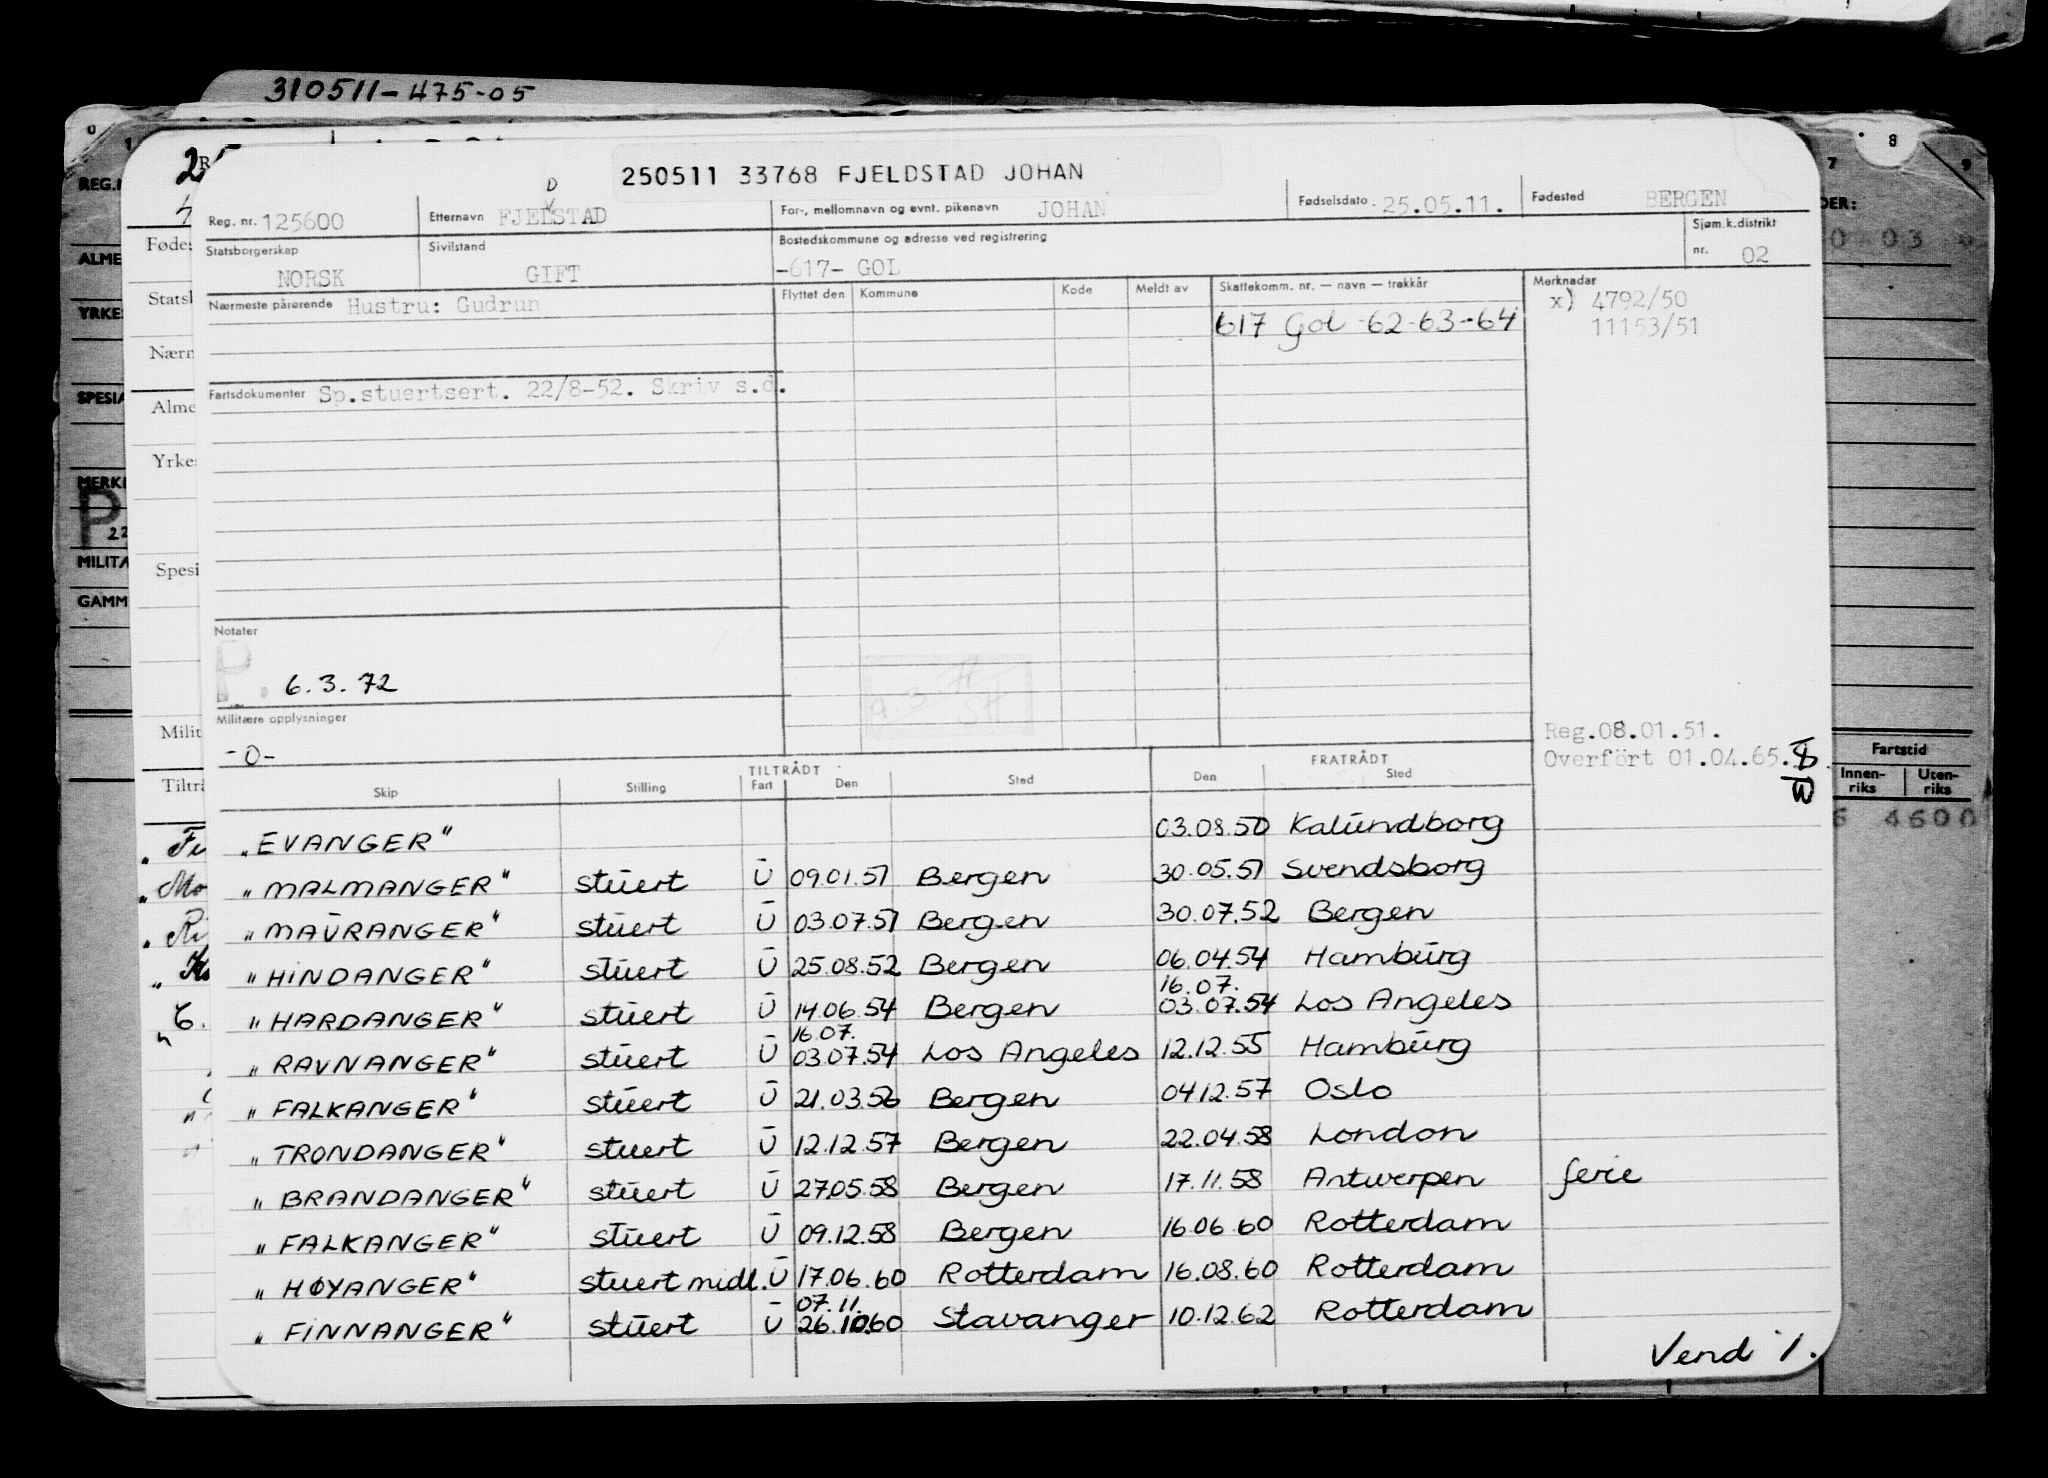 310511-475-05
250511 33768 FJELDSTAD JOHAN
Reg. nr. 125600 Etternavn FJELSTAD D For-, mellomnavn og evnt. pikenavn JOHAN Fødselsdato 25.05.11. Fødested BERGEN
Statsborgerskap NORSK Sivilstand GIFT Bostedskommune og adresse ved registrering -617- GOL Sjøm.k.distrikt nr. 02
Nærmeste pårørende Hustru: Gudrun Flyttet den Kommune Kode Meldt av Skattekomm. nr. — navn — trekkår Merknader
617 Gol -62-63-64
x) 4792/50
11153/51
Fartsdokumenter Sp.stuertsert. 22/8-52. Skriv s.d.
Notater
P. 6.3.72
Militære opplysninger
-0-
Reg.08.01.51.
Overført 01.04.65.
TILTRÅDT FRATRÅDT
Skip Stilling Fart Den Sted Den Sted
"EVANGER" 03.08.50 Kalundborg
"MALMANGER" stuert U 09.01.51 Bergen 30.05.51 Svendsborg
"MAURANGER" stuert U 03.07.51 Bergen 30.07.52 Bergen
"HINDANGER" stuert U 25.08.52 Bergen 06.04.54 Hamburg
16.07.
"HARDANGER" stuert U 14.06.54 Bergen 03.07.54 Los Angeles
16.07.
"RAVNANGER" stuert U 03.07.54 Los Angeles 12.12.55 Hamburg
"FALKANGER" stuert U 21.03.56 Bergen 04.12.57 Oslo
"TRONDANGER" stuert U 12.12.57 Bergen 22.04.58 London
"BRANDANGER" stuert U 27.05.58 Bergen 17.11.58 Antwerpen ferie
"FALKANGER" stuert U 09.12.58 Bergen 16.06.60 Rotterdam
"HØYANGER" stuert midl. U 17.06.60 Rotterdam 16.08.60 Rotterdam
07.11.
"FINNANGER" stuert U 26.10.60 Stavanger 10.12.62 Rotterdam
Vend !.
Fartstid
Innen-
riks
Uten-
riks
4600